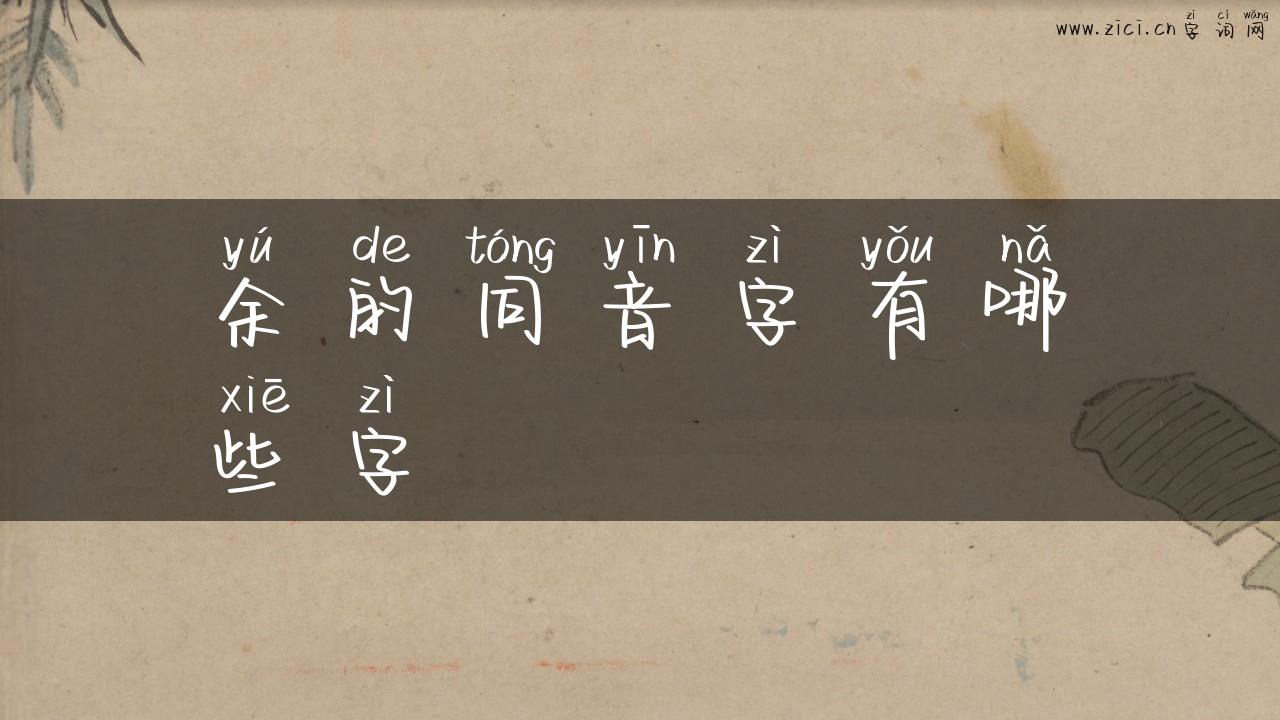 zì cí wǎng
www.zici.cn 字 词 网
yú de tóng yīn zì yǒu nǎ
余 的 同 音 字 有 哪
xiē zì
些 字